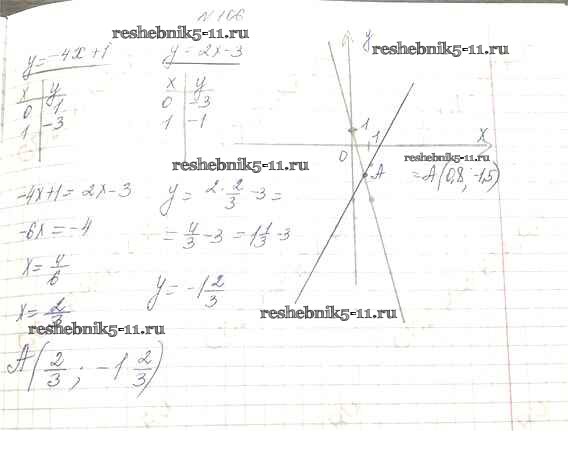 № 166
reshebnik5-11.ru
y = -4x + 1
y = 2x - 3
x y
0 1
1 -3
x y
0 -3
1 -1
-4x+1 = 2x-3
-6x = -4
x = 4/6
x = 2/3
reshebnik5-11.ru
A(2/3 ; -1 2/3)
y = 2·2/3 - 3 =
= 4/3 - 3 = 1 1/3 - 3
y = -1 2/3
reshebnik5-11.ru
y
1
1
x
0
A
reshebnik5-11.ru
= A(0,8; -1,5)
reshebnik5-11.ru